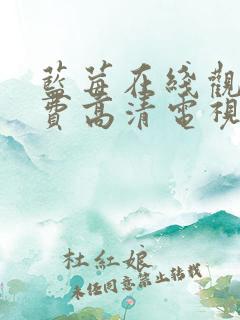 藍莓在綫觀
費高清電視
杜紅娘
未經同意禁止轉載